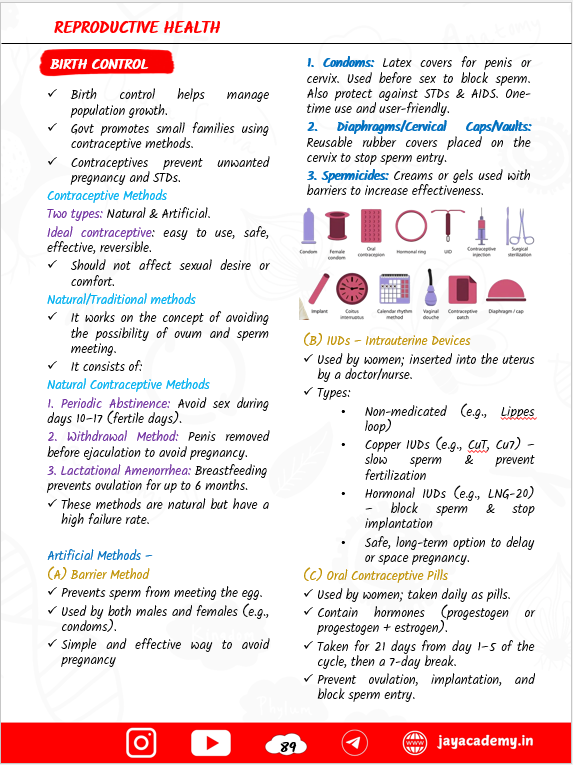 REPRODUCTIVE HEALTH
BIRTH CONTROL
✓ Birth control helps manage
population growth.
✓ Govt promotes small families using
contraceptive methods.
✓ Contraceptives prevent unwanted
pregnancy and STDs.
Contraceptive Methods
Two types: Natural & Artificial.
Ideal contraceptive: easy to use, safe,
effective, reversible.
✓ Should not affect sexual desire or
comfort.
Natural/Traditional methods
✓ It works on the concept of avoiding
the possibility of ovum and sperm
meeting.
✓ It consists of:
Natural Contraceptive Methods
1. Periodic Abstinence: Avoid sex during
days 10–17 (fertile days).
2. Withdrawal Method: Penis removed
before ejaculation to avoid pregnancy.
3. Lactational Amenorrhea: Breastfeeding
prevents ovulation for up to 6 months.
✓ These methods are natural but have a
high failure rate.
Artificial Methods –
(A) Barrier Method
✓ Prevents sperm from meeting the egg.
✓ Used by both males and females (e.g.,
condoms).
✓ Simple and effective way to avoid
pregnancy
1. Condoms: Latex covers for penis or
cervix. Used before sex to block sperm.
Also protect against STDs & AIDS. One-
time use and user-friendly.
2. Diaphragms/Cervical Caps/Vaults:
Reusable rubber covers placed on the
cervix to stop sperm entry.
3. Spermicides: Creams or gels used with
barriers to increase effectiveness.
Condom
Female
condom
Oral
contracepion
Hormonal ring
IUD
Contraceptive
injection
Surgical
sterilization
Implant
Coitus
interruptus
Calendar rhythm
method
Vaginal
douche
Contraceptive
patch
Diaphragm / cap
(B) IUDs – Intrauterine Devices
✓ Used by women; inserted into the uterus
by a doctor/nurse.
✓ Types:
• Non-medicated (e.g., Lippes
loop)
• Copper IUDs (e.g., CuT, Cu7) –
slow sperm & prevent
fertilization
• Hormonal IUDs (e.g., LNG-20)
– block sperm & stop
implantation
• Safe, long-term option to delay
or space pregnancy.
(C) Oral Contraceptive Pills
✓ Used by women; taken daily as pills.
✓ Contain hormones (progestogen or
progestogen + estrogen).
✓ Taken for 21 days from day 1–5 of the
cycle, then a 7-day break.
✓ Prevent ovulation, implantation, and
block sperm entry.
89
www
jayacademy.in